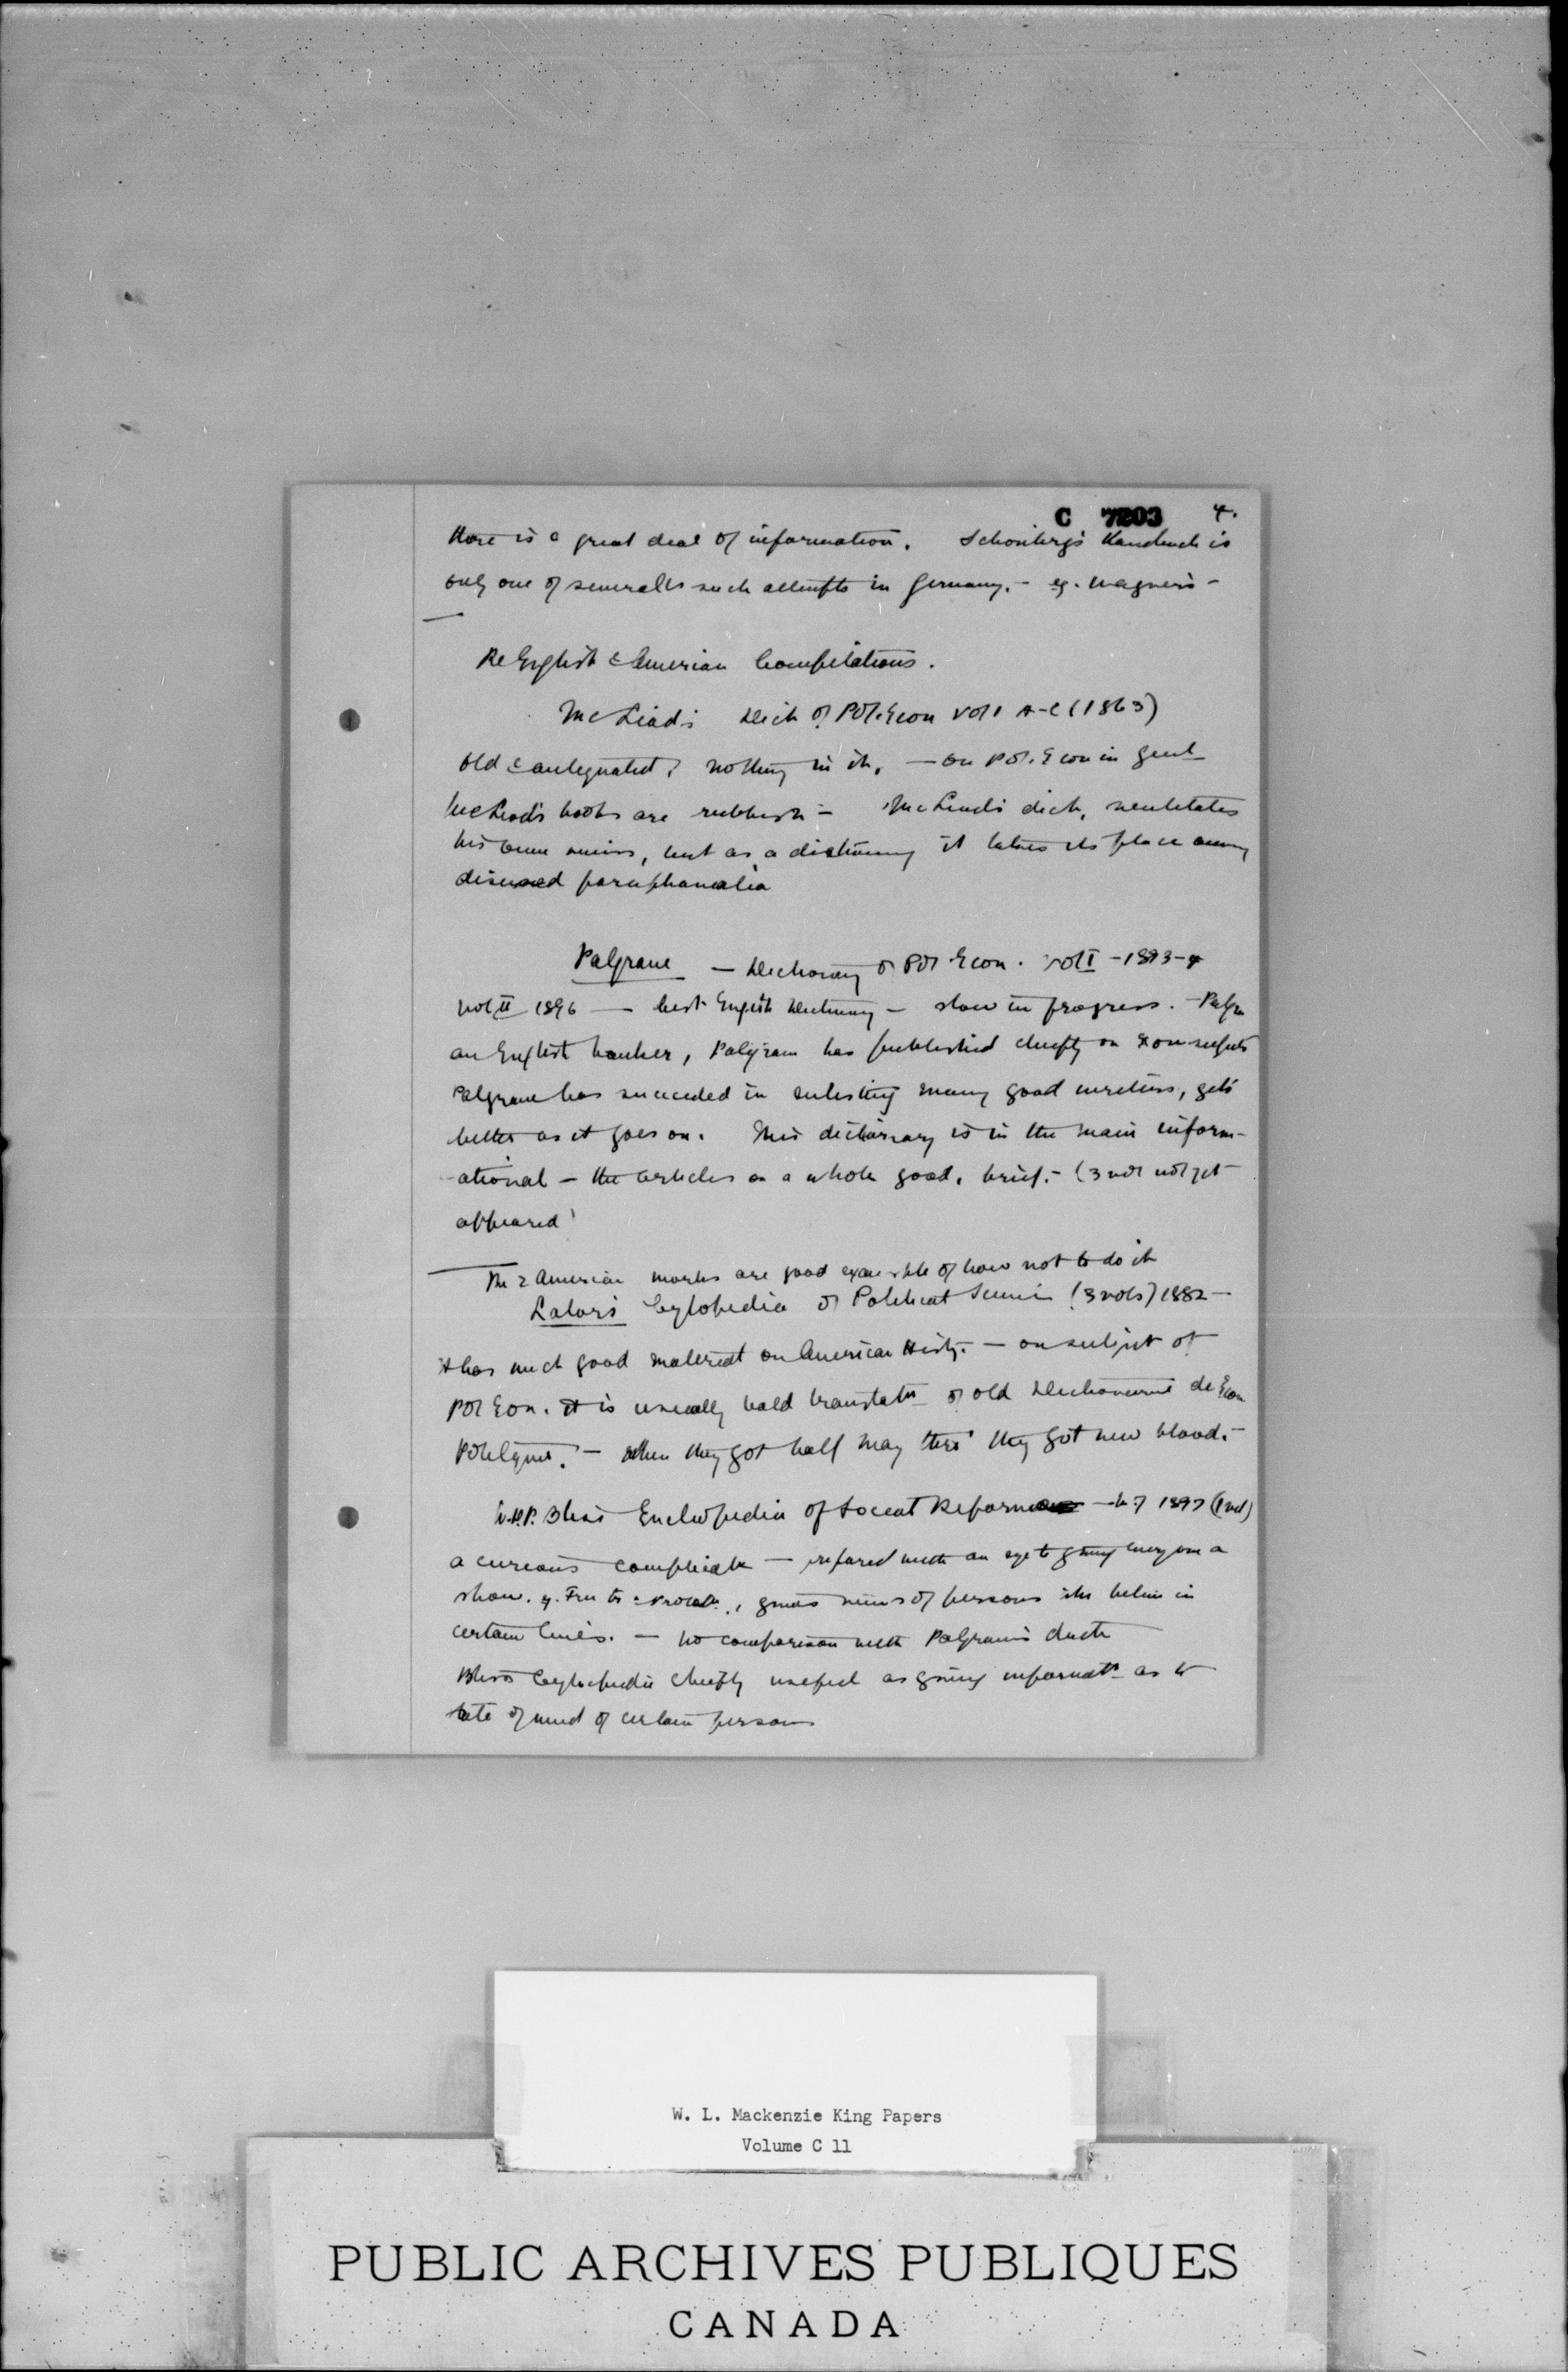 C 7203 4.
there is a great deal of information. Schonberg's Handbuch is
only one of several such attempts in Germany. - eg. Wagner's -
Re English & American Compilations.
McLeod's Dict of Pol. Econ Vol I A-C (1863)
old & antiquated, nothing in it, - on Pol. Econ in genl
McLeod's books are rubbish - McLeod's dict,
his own views, but as a dictionary it takes its place among
disused paraphanalia
Palgrave - Dictionary of Pol Econ. Vol I - 1893-4
Vol II 1896 - best English Dictionary - slow in progress. - Palgr
an English banker, Palgrave has published chiefly on Econ subjects
Palgrave has succeeded in enlisting many good writers, gets
better as it goes on. This dictionary is in the main inform-
ational - the articles on a whole good, brief. - (3 vol not yet
appeared)
The 2 American works are good example of how not to do it
Lalor's Cyclopedia of Political Science (3 vols) 1882 -
it has much good material on American Histy. - on subject of
Pol Econ. it is usually bald translatn of old Dictionnaire de Econ
Politique. - when they got half way thro' they got new blood. -
W.D.P. Bliss Encyclopedia of Social Reform - 1897 (1 vol)
a curious - prepared with an eye to giving everyone a
show. eg. Free tr , gives views of persons who believe in
certain lines. - no comparison with Palgrave's dict
Bliss Cyclopedia chiefly useful as giving informatn as to
state of mind of certain persons
W. L. Mackenzie King Papers
Volume C 11
PUBLIC ARCHIVES PUBLIQUES
CANADA